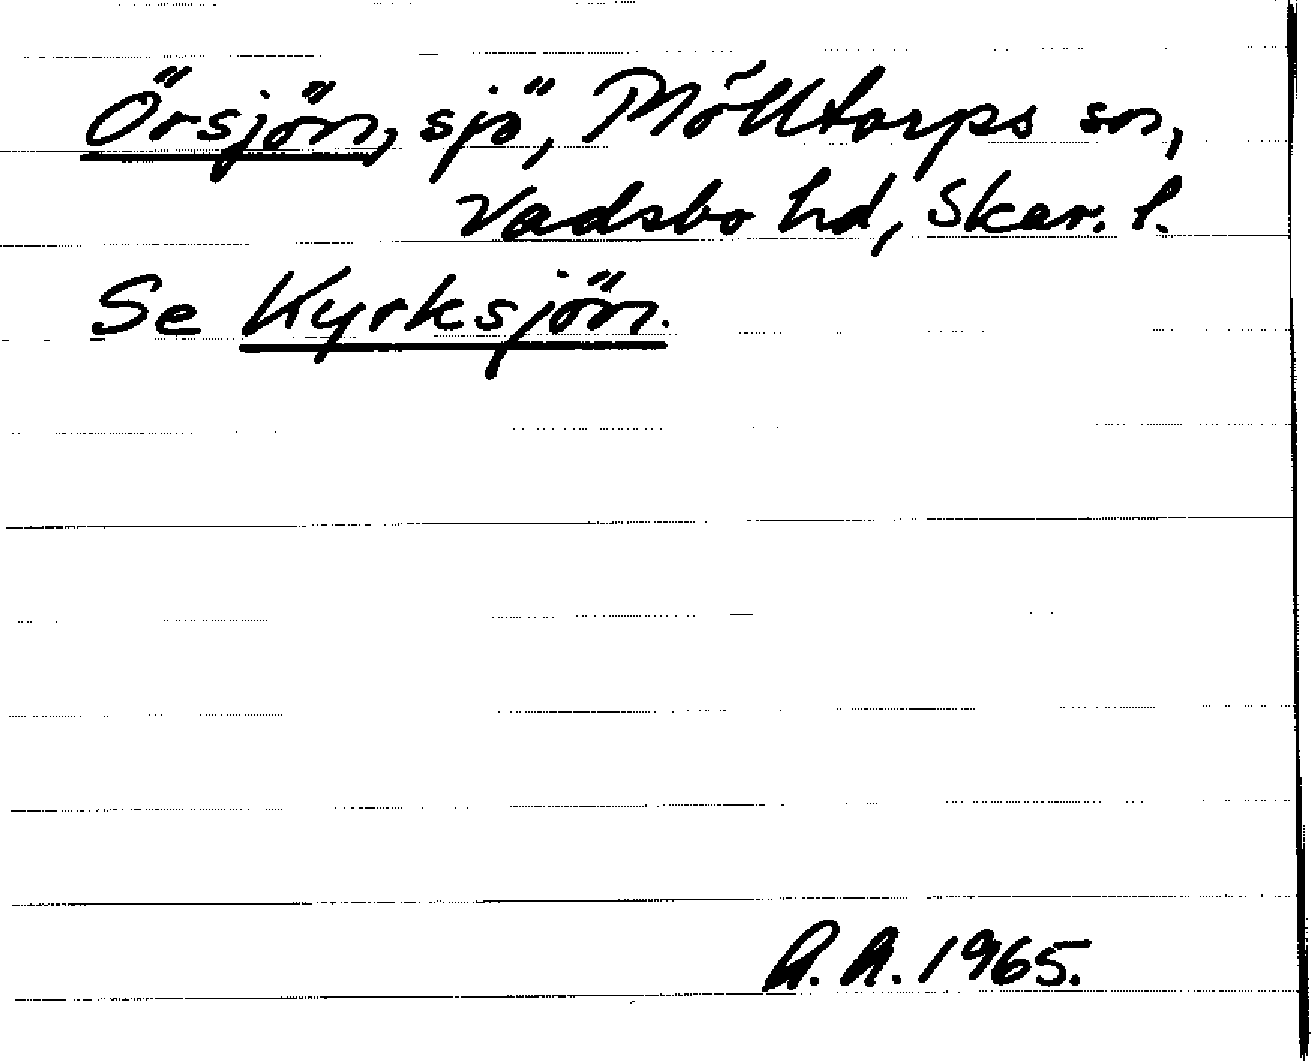 Örsjön, sjö, Mölltorps sn,
Vadsbo hd, Skar. l.
Se Kyrksjön.
A. A. 1965.